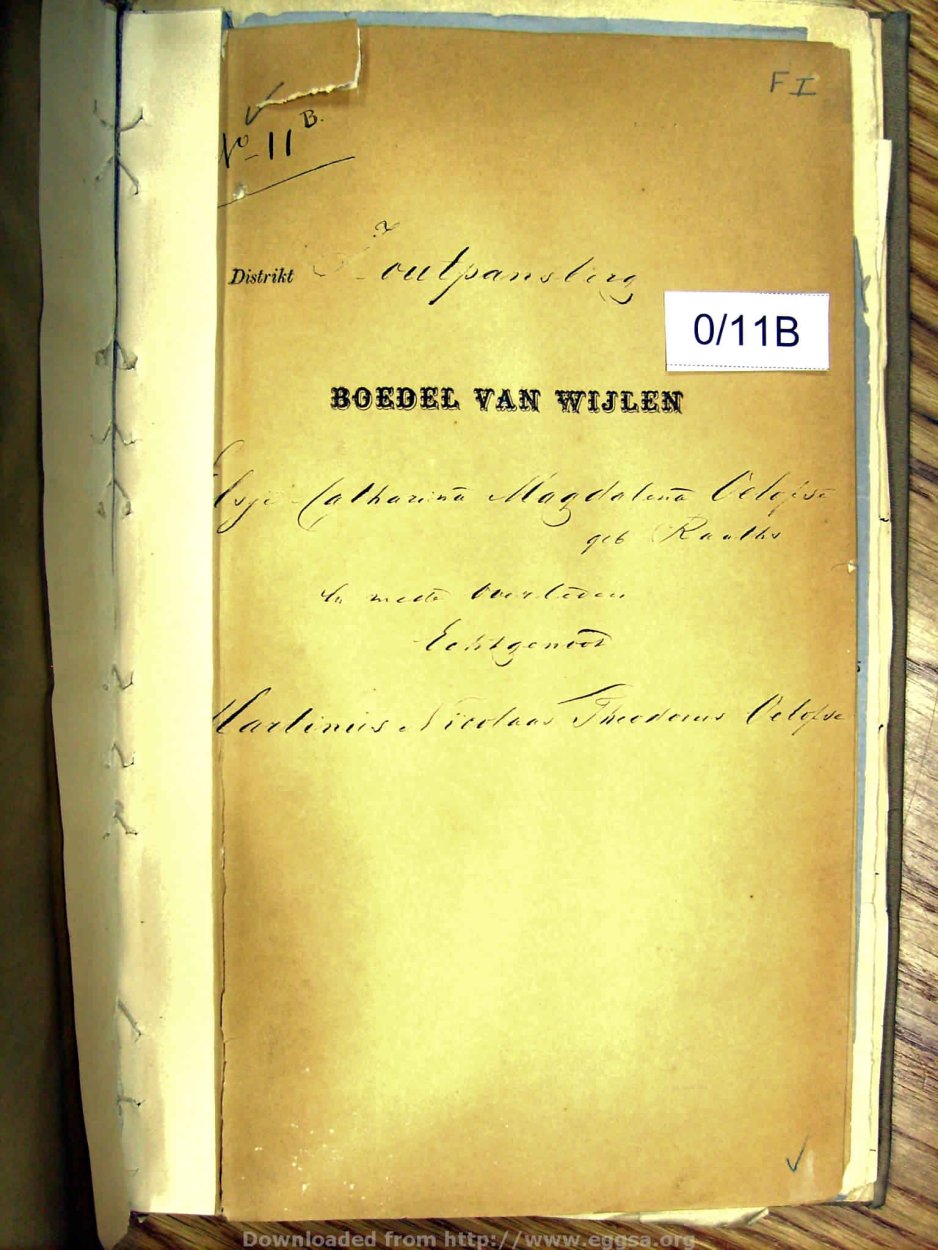 F I
No 11 B.
Distrikt Zoutpansberg
0/11B
BOEDEL VAN WIJLEN
Elsje Catharina Magdalena Oelofse
geb Raaths
En mede overleden
Echtgenoot
Martinus Nicolaas Theodorus Oelofse
Downloaded from http://www.eggsa.org